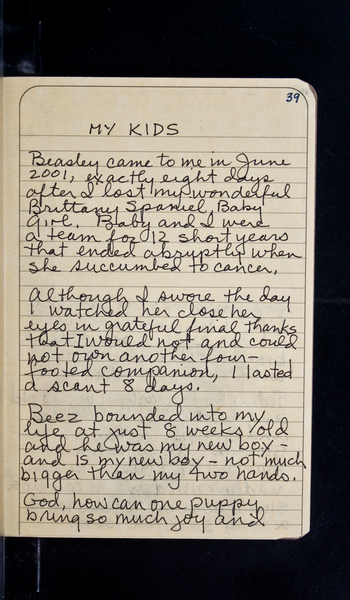 39
MY KIDS
Beasley came to me in June
2001, exactly eight days
after I lost my wonderful
Brittany Spaniel, Baby
Girl. Baby and I were
a team for 12 short years
that ended abruptly when
she succumbed to cancer.
Although I swore the day
I watched her close her
eyes in grateful final thanks
that I would not and could
not own another four-
footed companion, I lasted
a scant 8 days.
Beez bounded into my
life at just 8 weeks old
and he was my new boy -
and IS my new boy - not much
bigger than my two hands.
God, how can one puppy
bring so much joy and